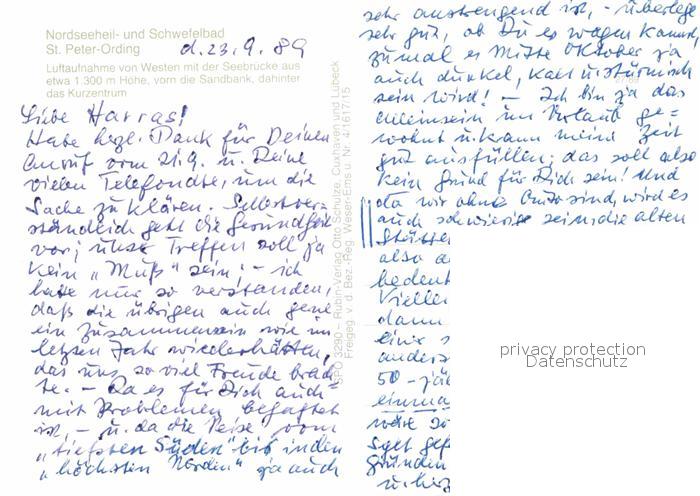 Nordseeheil- und Schwefelbad
St. Peter-Ording
d. 23.9.89
Luftaufnahme von Westen mit der Seebrücke aus
etwa 1.300 m Höhe, vorn die Sandbank, dahinter
das Kurzentrum
Liebe Harras!
Habt herzl. Dank für Deinen
Anruf vom 21.9. u. Deine
vielen Telefondte, um die
Sache zu klären. Selbstver-
ständlich geht die Gesundheit
vor; unser Treffen soll ja
kein „Muß" sein! – ich
hatte nur so verstanden,
daß die übrigen auch gene
ein Zusammensein wie im
letzten Jahr wiederhätten,
das uns so viel Freude brach-
te. – Da es für Dich auch
mit Problemen behaftet
ist, – u. da die Reise vom
„tiefsten Süden" bis in den
„höchsten Norden" ja auch
SPO 3290 – Rubin-Verlag Otto Schütze, Cuxhaven und Lübeck
Freigeg. v. d. Bez.-Reg. Weser-Ems u. Nr. 41617/15
sehr anstrengend ist, – überlege
sehr gut, ob Du es wagen kannst,
zumal es Mitte Oktober ja
auch dunkel, kalt u. stürmisch
sein wird! – Ich bin ja das
Alleinsein im Urlaub ge-
wohnt u. kann meine Zeit
gut ausfüllen; das soll also
kein Grund für Dich sein! Und
da wir ohne Auto sind, wird es
auch schwierig sein, die alten
Stätte
also a
bedent
Vielle
dann
eine s
anders
50-jäh
einma
wäre so
Spet gef
Gründen
u. herz
privacy protection
Datenschutz